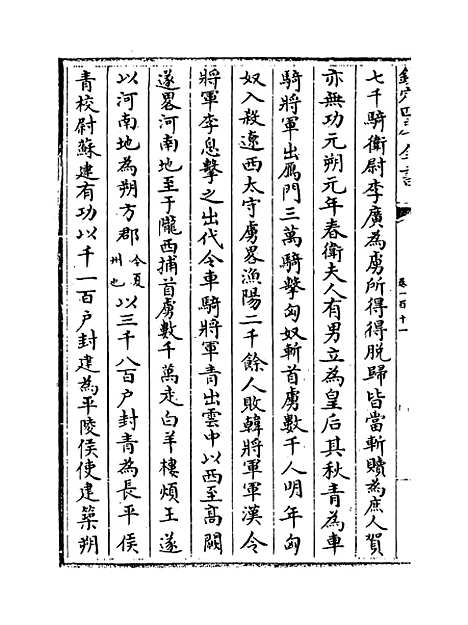 欽定四庫全書
卷一百十一
七千騎衛尉李廣為虜所得得脫歸皆當斬贖為庶人賀
亦無功元朔元年春衛夫人有男立為皇后其秋青為車
騎將軍出鴈門三萬騎擊匈奴斬首虜數千人明年匈
奴入殺遼西太守虜畧漁陽二千餘人敗韓將軍軍漢令
將軍李息擊之出代令車騎將軍青出雲中以西至高闕
遂畧河南地至于隴西捕首虜數千萬走白羊樓煩王遂
以河南地為朔方郡今夏州也以三千八百户封青為長平侯
青校尉蘇建有功以千一百户封建為平陵侯使建築朔